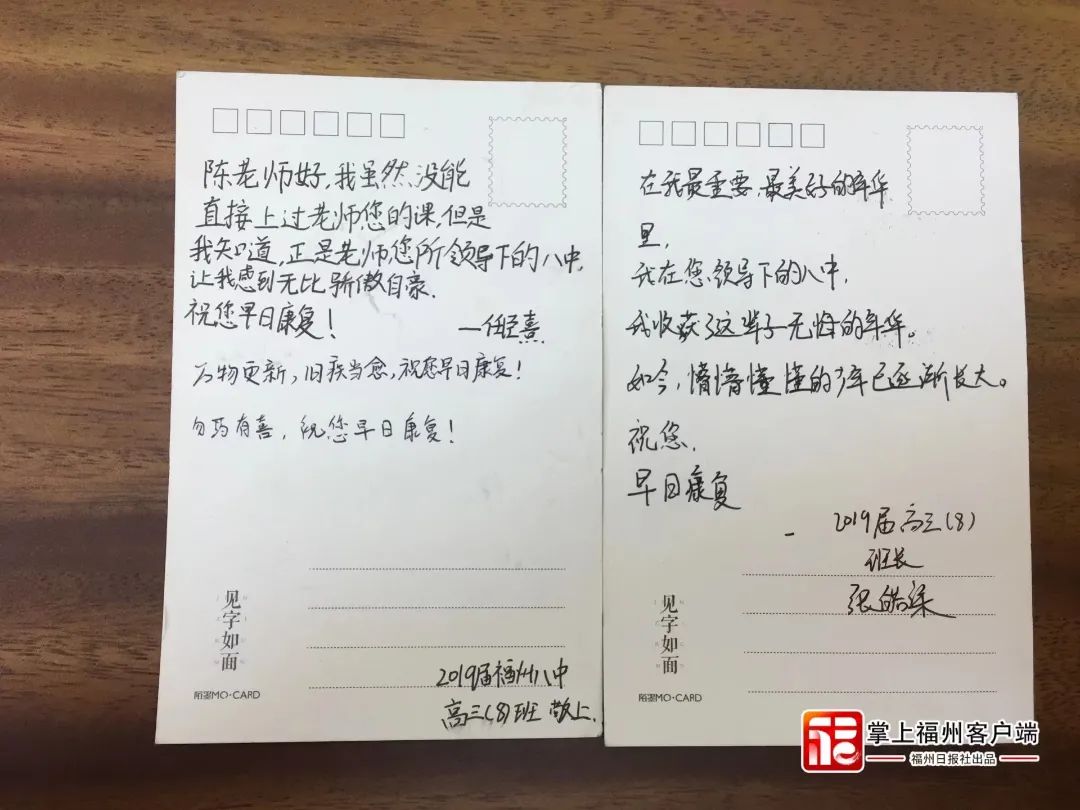 陈老师好,我虽然没能
直接上过老师您的课,但是
我知道,正是老师您所领导下的八中,
让我感到无比骄傲自豪.
祝您早日康复!
—任经熹
万物更新,旧疾当愈,祝您早日康复!
勿药有喜,祝您早日康复!
见字如面
陌墨MO·CARD
2019届福州八中
高三(8)班 敬上.
在我最重要,最美好的年华
里,
我在您领导下的八中,
我收获了这辈子无悔的年华。
如今,懵懵懂懂的少年已逐渐长大。
祝您,
早日康复
- 2019届高三(8)
班长
张皓
见字如面
陌墨MO·CARD
掌上福州客户端
福州日报社出品